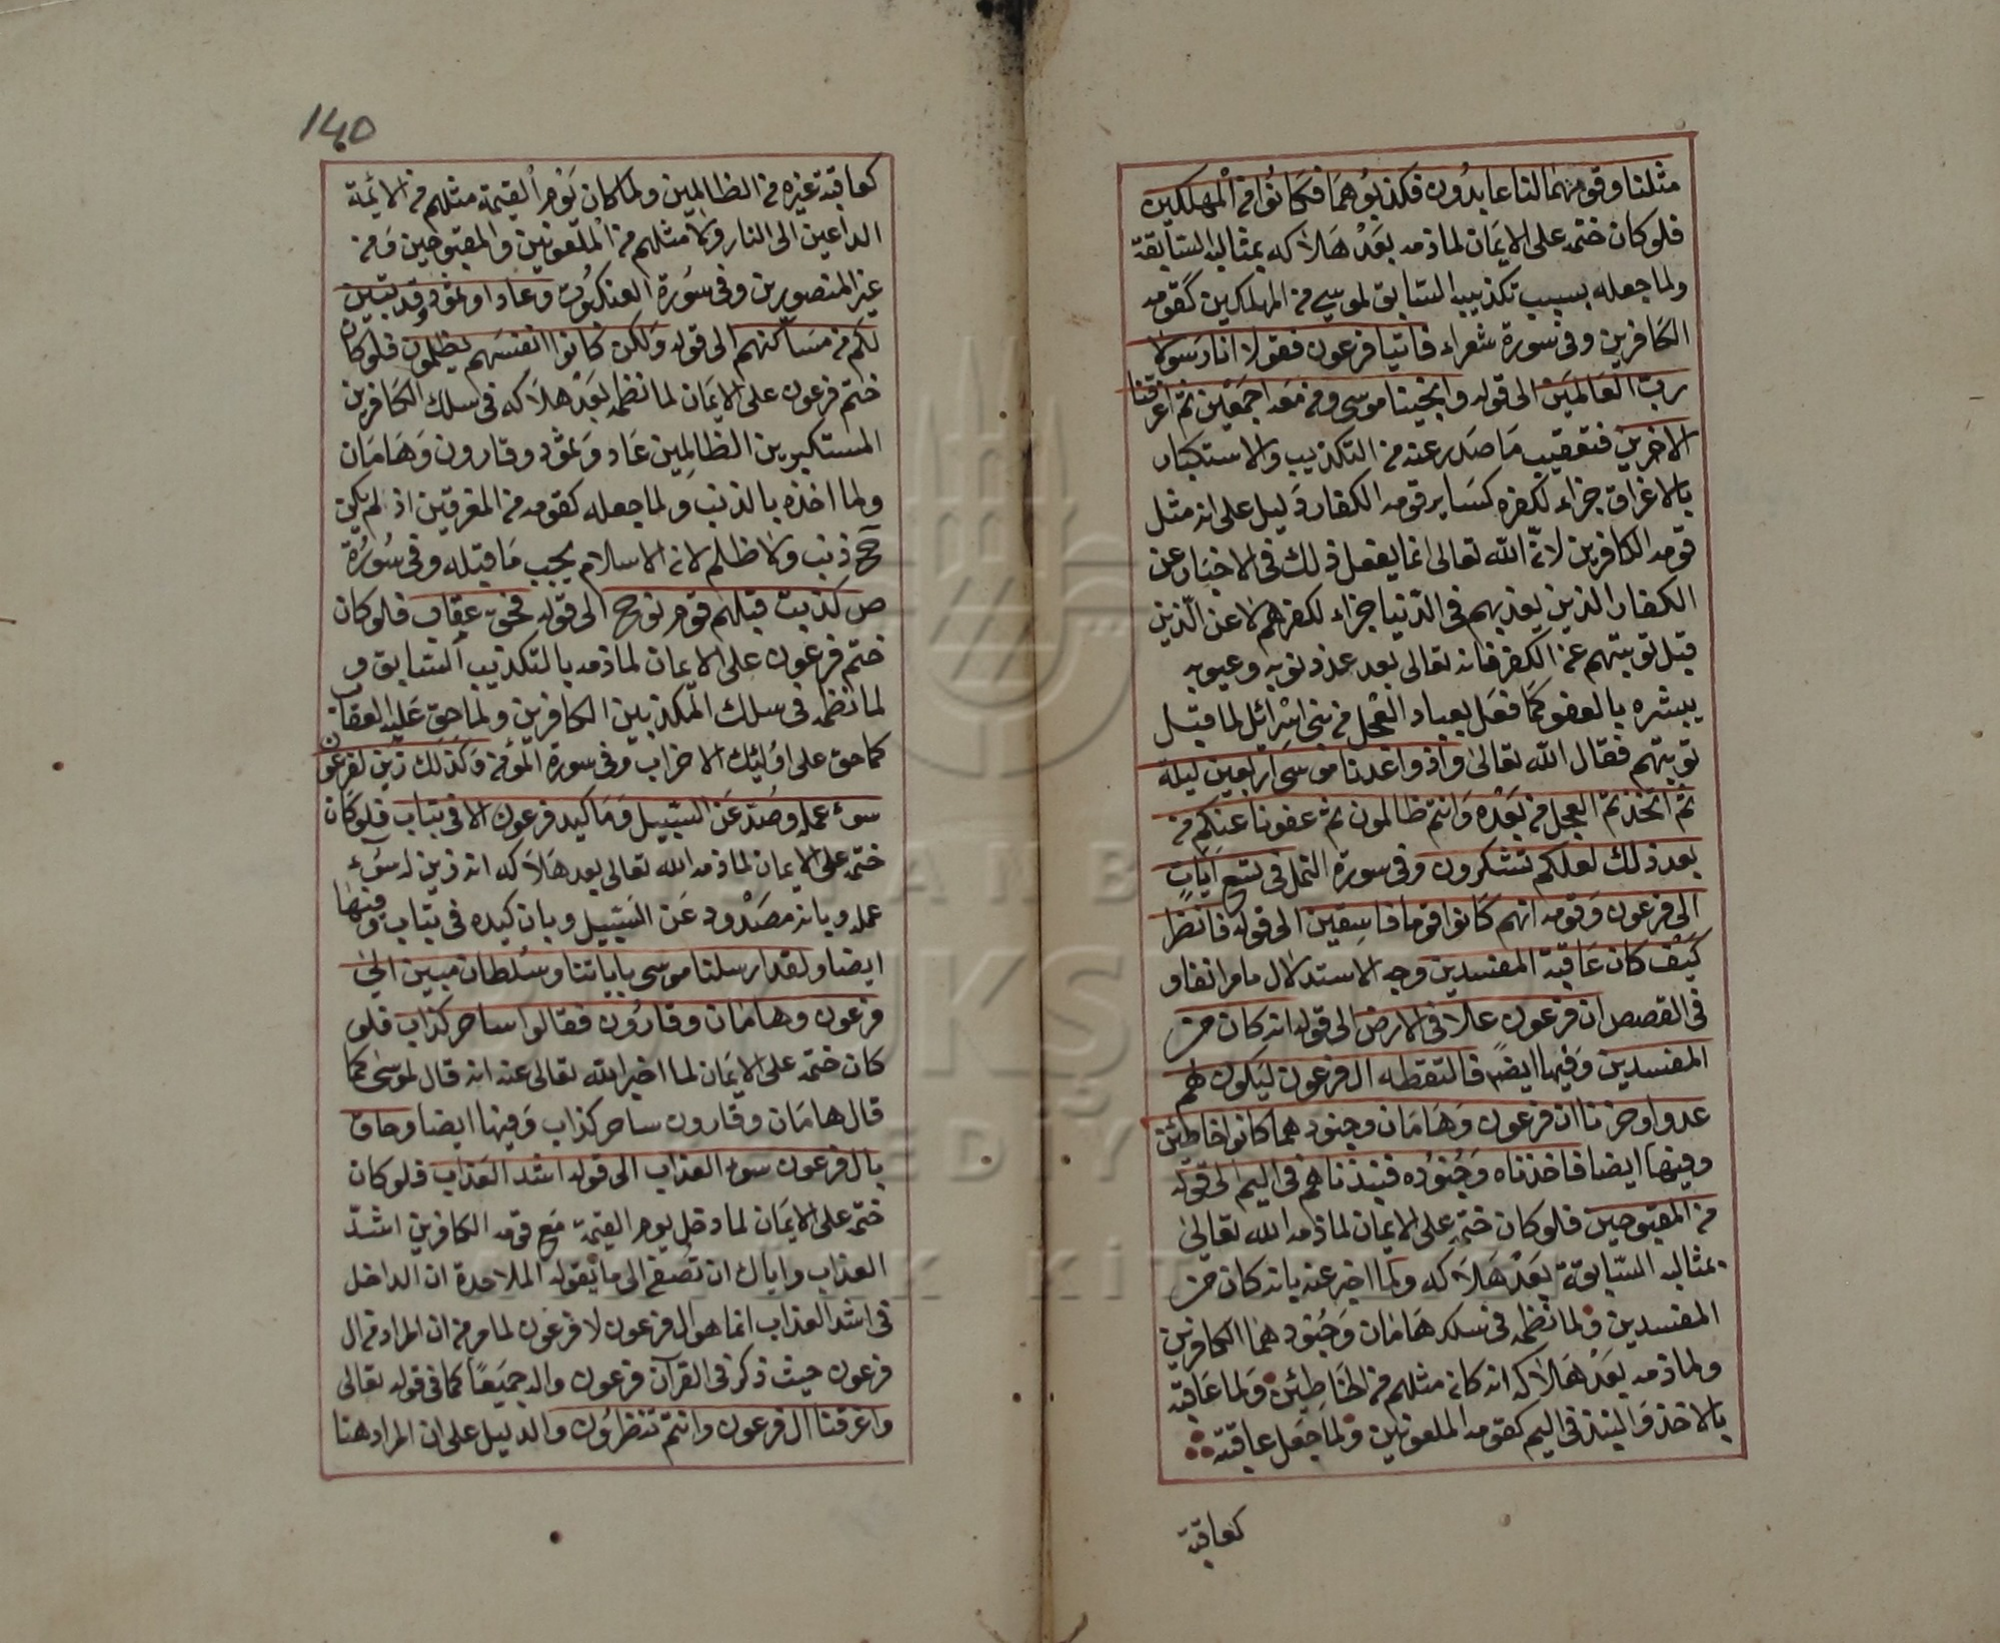 مثلنا وقومهما لنا عابدون فكذبوهما فكانوا من المهلكين
فلو كان ختمه على الايمان لما ذمه بعد هلاكه بمثالبه السابقة
ولما جعله بسبب تكذيبه السابق لموسى من المهلكين كقومه
الكافرين وفى سورة شعراء فاتيا فرعون فقولا انا رسولا
رب العالمين الى قوله وانجينا موسى ومن معه اجمعين ثم اغرقنا
الاخرين فتعقيب ما صدر عنه من التكذيب والاستكبار
بالاغراق جزاء لكفره كساير قومه الكفار دليل على انه مثل
قومه الكافرين لانّ الله تعالى انما يفعل ذلك فى الاخبار عن
الكفار الذين يعذبهم فى الدّنيا جزاء لكفرهم لا عن الّذين
قبل توبتهم عن الكفر فانه تعالى بعد عد ذنوبه وعيوبه
يبشره بالعفو كما فعل بعباد العجل من بنى اسرائيل لما قبل
توبتهم فقال الله تعالى واذ واعدنا موسى اربعين ليلة
ثم اتخذتم العجل من بعده وانتم ظالمون ثم عفونا عنكم من
بعد ذلك لعلكم تشكرون وفى سورة النمل فى تسع ايات
الى فرعون وقومه انهم كانوا قوما فاسقين الى قوله فانظر
كيف كان عاقبة المفسدين وجه الاستدلال ما مر انفا و
فى القصص ان فرعون علا فى الارض الى قوله انه كان من
المفسدين وفيها ايضا فالتقطه ال فرعون ليكون لهم
عدوا وحزنا ان فرعون وهامان وجنودهما كانوا خاطئين
وفيها ايضا فاخذناه وجنوده فنبذناهم فى اليم الى قوله
من المقبوحين فلو كان ختم على الايمان لما ذمه الله تعالى
بمثالبه السّابقة بعد هلاكه ولما اخبر عنه بانه كان من
المفسدين ولما نظمه فى سلك هامان وجنودهما الكافرين
ولما ذمه بعد هلاكه انه كان مثلهم من الخاطئين ولما عاقبه
بالاخذ والنبذ فى اليم كقومه الملعونين ولما جعل عاقبته
كعاقبة
140
كعاقبة غيره من الظالمين ولما كان يوم القيمة مثلهم من الائمة
الداعين الى النار ولا مثلهم من الملعونين والمقبوحين ومن
غير المنصورين وفى سورة العنكبوت وعادا وثمود وقد تبين
لكم من مساكنهم الى قوله ولكن كانوا انفسهم يظلمون فلو كان
ختم فرعون على الايمان لما نظمه بعد هلاكه فى سلك الكافرين
المستكبرين الظالمين عاد وثمود وقارون وهامان
ولما اخذه بالذنب ولما جعله كقومه من المغرقين اذ لم يكن
ح ذنب ولا ظلم لان الاسلام يجب ما قبله وفى سورة
ص كذبت قبلهم قوم نوح الى قوله فحق عقاب فلو كان
ختم فرعون على الايمان لما ذمه بالتكذيب السابق و
لما نظمه فى سلك المكذبين الكافرين ولما حق عليه العقاب
كما حق على اولئك الاحزاب وفى سورة المؤمن وكذلك زين لفرعون
سوء عمله وصد عن السبيل وما كيد فرعون الا فى تباب فلو كان
ختمه على الايمان لما ذمه الله تعالى بعد هلاكه انه زين له سوء
عمله وبانه مصدود عن السبيل وبان كيده فى تباب وفيها
ايضا ولقد ارسلنا موسى باياتنا وسلطان مبين الى
فرعون وهامان وقارون فقالوا ساحر كذاب فلو
كان ختمه على الايمان لما اخبر الله تعالى عنه انه قال لموسى كما
قال هامان وقارون ساحر كذاب وفيها ايضا وحاق
بال فرعون سوء العذاب الى قوله اشد العذاب فلو كان
ختمه على الايمان لما دخل يوم القيمة مع قومه الكافرين اشدّ
العذاب واياك ان تصغى الى ما يقوله الملاحدة ان الداخل
فى اشد العذاب انما هو ال فرعون لا فرعون لما مر من ان المراد من ال
فرعون حيث ذكر فى القرآن فرعون واله جميعا كما فى قوله تعالى
واغرقنا ال فرعون وانتم تنظرون والدليل على ان المراد هنا